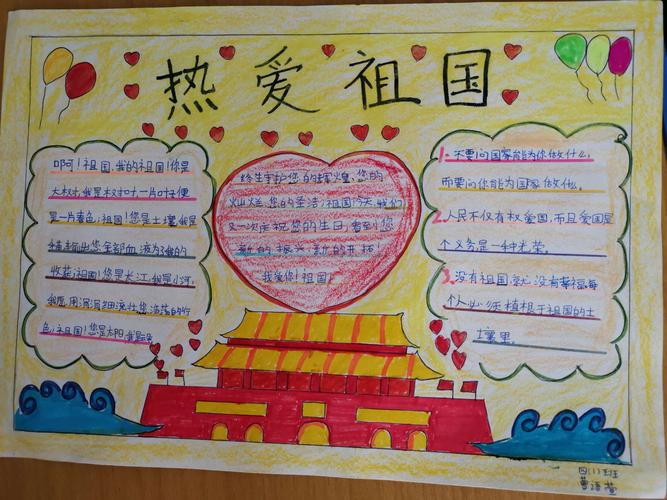 热爱祖国
啊!祖国,我的祖国!你是
大树,我是树叶,一片叶便
是一片春色;祖国!您是土壤,我是
穗,输出您全部血液为了我的
收获;祖国!您是长江,我是小河,
我愿用涓涓细流壮您浩荡的行
色;祖国!您是太阳,我
终生守护您的辉煌,您的
灿烂,您的圣洁;祖国,今天,我们
又一次庆祝您的生日,看到您
新的振兴,新的开拓!
我爱你!祖国!
1.不要问国家能为你做什么,
而要问你能为国家做什么。
2.人民不仅有权爱国,而且爱国是
个义务,是一种光荣。
3.没有祖国,就没有幸福,每
个人必须植根于祖国的土
壤里。
四(1)班
曹语萱